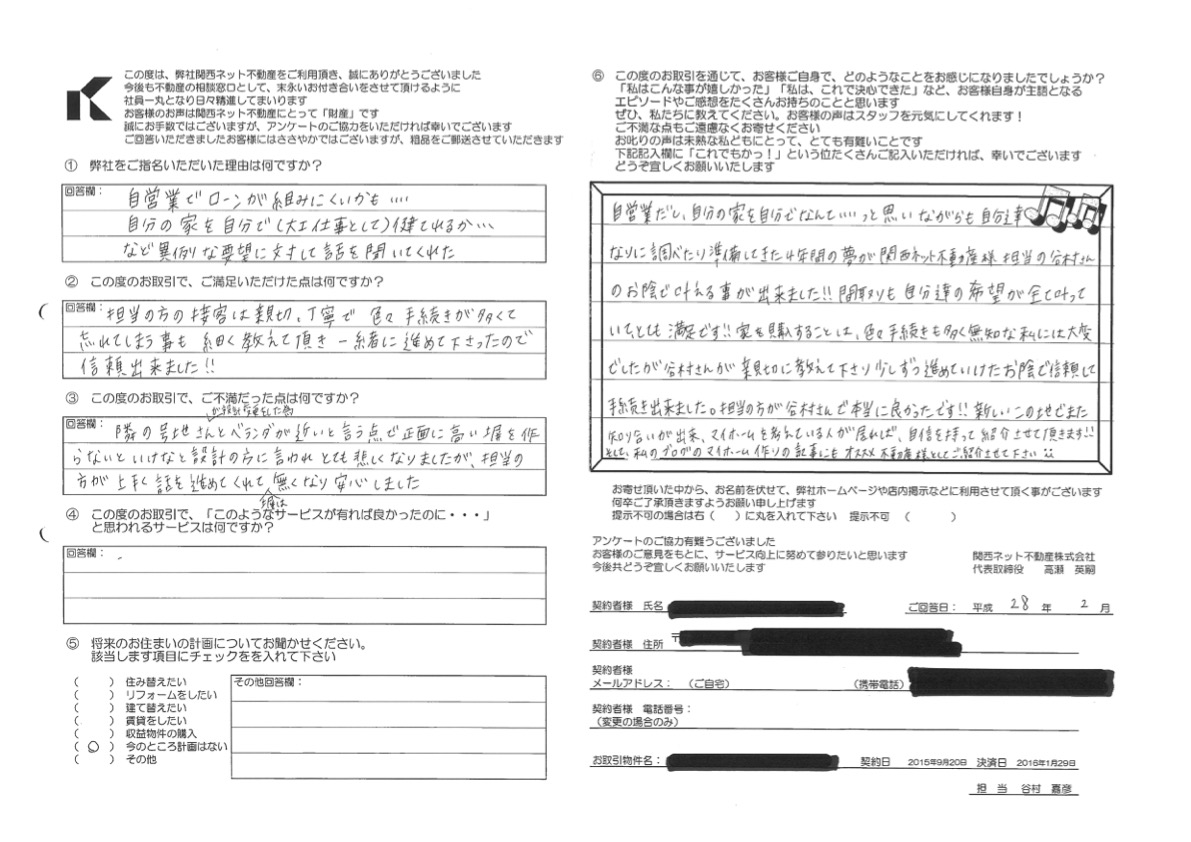 この度は、弊社関西ネット不動産をご利用頂き、誠にありがとうございました
今後も不動産の相談窓口として、末永いお付き合いをさせて頂けるように
社員一丸となり日々精進してまいります
お客様のお声は関西ネット不動産にとって「財産」です
誠にお手数ではございますが、アンケートのご協力をいただければ幸いでございます
ご回答いただきましたお客様にはささやかではございますが、粗品をご郵送させていただきます
① 弊社をご指名いただいた理由は何ですか？
回答欄：
自営業でローンが組みにくいかも‥‥
自分の家を自分で(大工仕事として)建てれるか‥‥
など異例な要望に対して話を聞いてくれた
② この度のお取引で、ご満足いただけた点は何ですか？
回答欄：担当の方の接客は親切、丁寧で 色々手続きが多くて
忘れてしまう事も 細く教えて頂き 一緒に進めて下さったので
信頼出来ました!!
③ この度のお取引で、ご不満だった点は何ですか？
が設計変更をした為
回答欄：隣の号地さんとベランダが近いと言う点で正面に高い塀を作
らないといけなと設計の方に言われ とても悲しくなりましたが、担当の
方が上手く話を進めてくれて 無くなり 安心しました
塀は
④ この度のお取引で、「このようなサービスが有れば良かったのに・・・」
と思われるサービスは何ですか？
回答欄：
⑤ 将来のお住まいの計画についてお聞かせください。
該当します項目にチェックをを入れて下さい
（　　）住み替えたい
（　　）リフォームをしたい
（　　）建て替えたい
（　　）賃貸をしたい
（　　）収益物件の購入
（ ○ ）今のところ計画はない
（　　）その他
その他回答欄：
⑥ この度のお取引を通じて、お客様ご自身で、どのようなことをお感じになりましたでしょうか？
「私はこんな事が嬉しかった」「私は、これで決心できた」など、お客様自身が主語となる
エピソードやご感想をたくさんお持ちのことと思います
ぜひ、私たちに教えてください。お客様の声はスタッフを元気にしてくれます！
ご不満な点もご遠慮なくお寄せください
お叱りの声は未熟な私どもにとって、とても有難いことです
下記記入欄に「これでもかっ！」という位たくさんご記入いただければ、幸いでございます
どうぞ宜しくお願いいたします
自営業だし、自分の家を自分でなんて‥‥っと思いながらも自分達
なりに調べたり準備してきた4年間の夢が関西ネット不動産様 担当の谷村さん
のお陰で叶える事が出来ました!! 間取りも自分達の希望が全て叶って
いて、とても満足です!! 家を購入することは、色々手続きも多く無知な私には大変
でしたが谷村さんが親切に教えて下さり少しずつ進めていけたお陰で信頼して
手続き出来ました。担当の方が谷村さんで本当に良かったです!! 新しいこの地でまた
知り合いが出来、マイホームを考えている人が居れば、自信を持って紹介させて頂きます!!
そして、私のブログのマイホーム作りの記事にもオススメ不動産様としてご紹介させて下さい
お寄せ頂いた中から、お名前を伏せて、弊社ホームページや店内掲示などに利用させて頂く事がございます
何卒ご了承頂きますようお願い申し上げます
提示不可の場合は右（　　）に丸を入れて下さい　提示不可　（　　　）
アンケートのご協力有難うございました
お客様のご意見をもとに、サービス向上に努めて参りたいと思います
今後共どうぞ宜しくお願いいたします
関西ネット不動産株式会社
代表取締役　高瀬　英嗣
契約者様　氏名
ご回答日：　平成　28　年　2　月
契約者様　住所　〒
契約者様
メールアドレス：　（ご自宅）　（携帯電話）
契約者様　電話番号：
（変更の場合のみ）
お取引物件名：　契約日　2015年9月20日　決済日　2016年1月29日
担　当　谷村　嘉彦